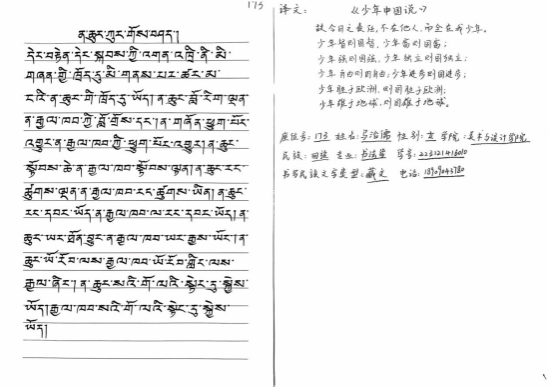 173
ན་ཆུང་ཀྲུང་གོས་བཤད།
དེར་བརྟེན་དེར་སྐབས་ཀྱི་འགན་འཁྲི་ནི་མི་
གཞན་གྱི་ཁོད་དུ་མི་གནས་པར་ཚང་མ་
ངའི་ན་ཆུང་གི་ཁོད་དུ་ཡོད། ན་ཆུང་བློ་རིག་ལྡན་
ན་རྒྱལ་ཁབ་ཀྱི་བློ་གྲོས་དར། ན་གཞོན་ཕྱུག་པོར་
འགྱུར་ན་རྒྱལ་ཁབ་ཀྱི་ཕྱུག་པོར་འགྱུར། ན་ཆུང་
སྟོབས་ཆེ་ན་རྒྱལ་ཁབ་སྟོབས་ལྡན། ན་ཆུང་རང་
ཚུགས་ལྡན་ན་རྒྱལ་ཁབ་རང་ཚུགས་ཡིན། ན་ཆུང་
རང་དབང་ཡོད་ན་རྒྱལ་ཁབ་ལ་རང་དབང་ཡོད། ན་
ཆུང་ཡར་ཐོན་བྱུང་ན་རྒྱལ་ཁབ་ཡར་རྒྱས་ཡོང་། ན་
ཆུང་ཡོ་རོབ་ལས་རྒྱལ་ཁབ་ཡོ་རོབ་གླིང་ལས་
རྒྱལ་ཞིང་། ན་ཆུང་སའི་གོ་ལའི་སྟེང་དུ་སྐྱེས་
ཡོད། རྒྱལ་ཁབ་སའི་གོ་ལའི་སྟེང་དུ་སྐྱེས་
ཡོད།
译文： 《少年中国说》
故今日之责任，不在他人，而全在我少年。
少年智则国智，少年富则国富；
少年强则国强，少年独立则国独立；
少年自由则国自由；少年进步则国进步；
少年胜于欧洲，则国胜于欧洲；
少年雄于地球，则国雄于地球。
座位号：173 姓名： 性别：女 学院：美术与设计学院
民族：回族 专业：书法学 学号：223121416010
书写民族文字类型：藏文 电话：18909043780